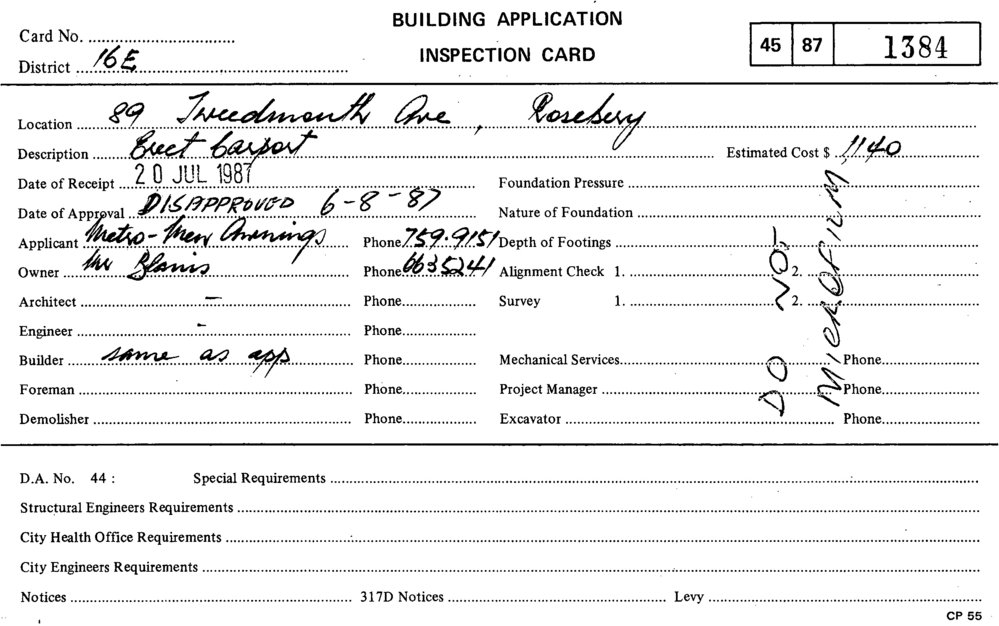 BUILDING APPLICATION
Card No.
INSPECTION CARD
45 87 1384
District 16E
Location 89 Tweedmouth Ave, Rosebery
Description Erect Carport
Estimated Cost $ 1140
Date of Receipt 20 JUL 1987
Foundation Pressure
Date of Approval DISAPPROVED 6-8-87
Nature of Foundation
Applicant Metro-Men Awnings Phone 759.9151 Depth of Footings
Owner Mr Phone 6635241 Alignment Check 1. 2.
Architect — Phone Survey 1. 2.
Engineer - Phone
Builder same as app Phone Mechanical Services Phone
Foreman Phone Project Manager Phone
Demolisher Phone Excavator Phone
DO NOT
MICROFILM
D.A. No. 44 : Special Requirements
Structural Engineers Requirements
City Health Office Requirements
City Engineers Requirements
Notices 317D Notices Levy
CP 55